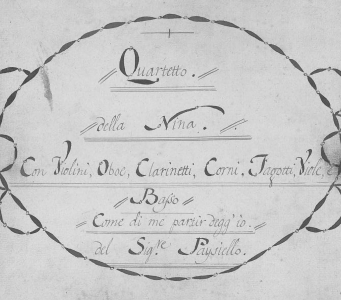 Quartetto.
della Nina.
Con Violini, Oboe, Clarinetti, Corni, Fagotti, Viole, e
Basso
Come di me partir degg'io.
del Sig.re Paysiello.